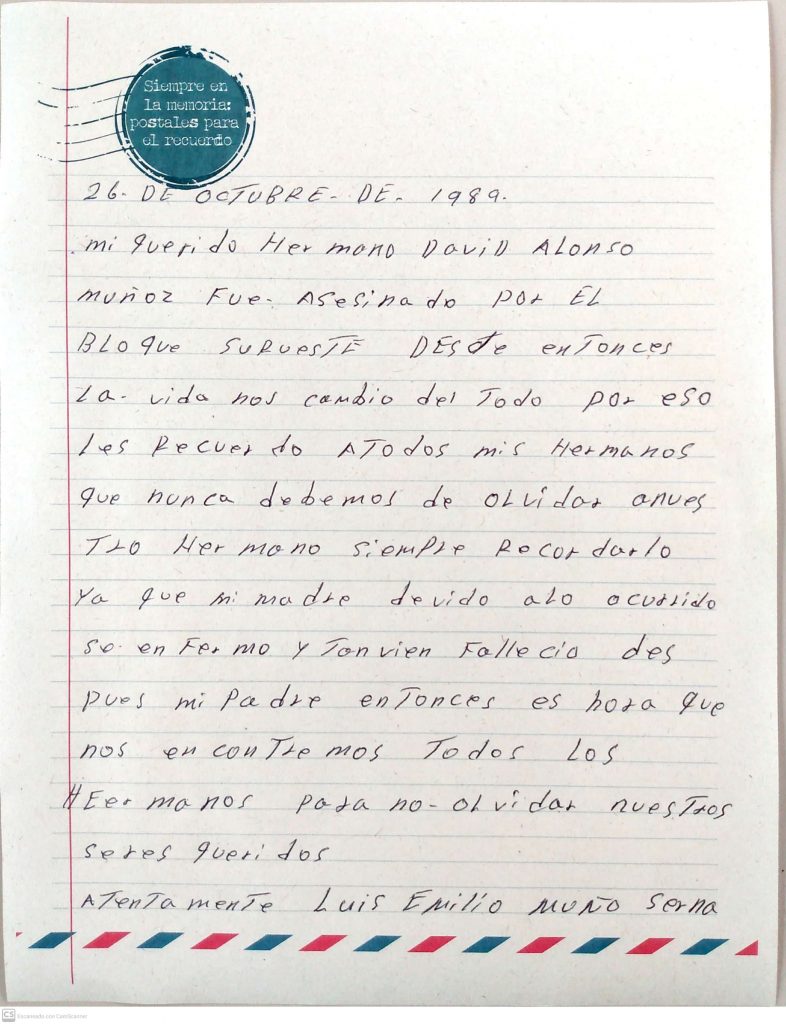 Siempre en
la memoria:
postales para
el recuerdo
26. DE OCTUBRE. DE. 1989.
mi querido Hermano DaviD ALonso
muñoz Fue. Asesinado por EL
BLoque SURuesTE DESde enTonces
La. vida nos cambio del Todo por eso
Les Recuerdo ATodos mis Hermanos
que nunca debemos de oLvidar anues
Tro Hermano siempre Recordarlo
Ya que mi madre devido alo ocurrido
se enFermo y Tanvien Fallecio des
pues mi Padre enTonces es hora que
nos enconTremos Todos Los
HEermanos para no-oLvidar nuesTros
seres queridos
ATenTamenTe Luis Emilio muño serna
CS Escaneado con CamScanner